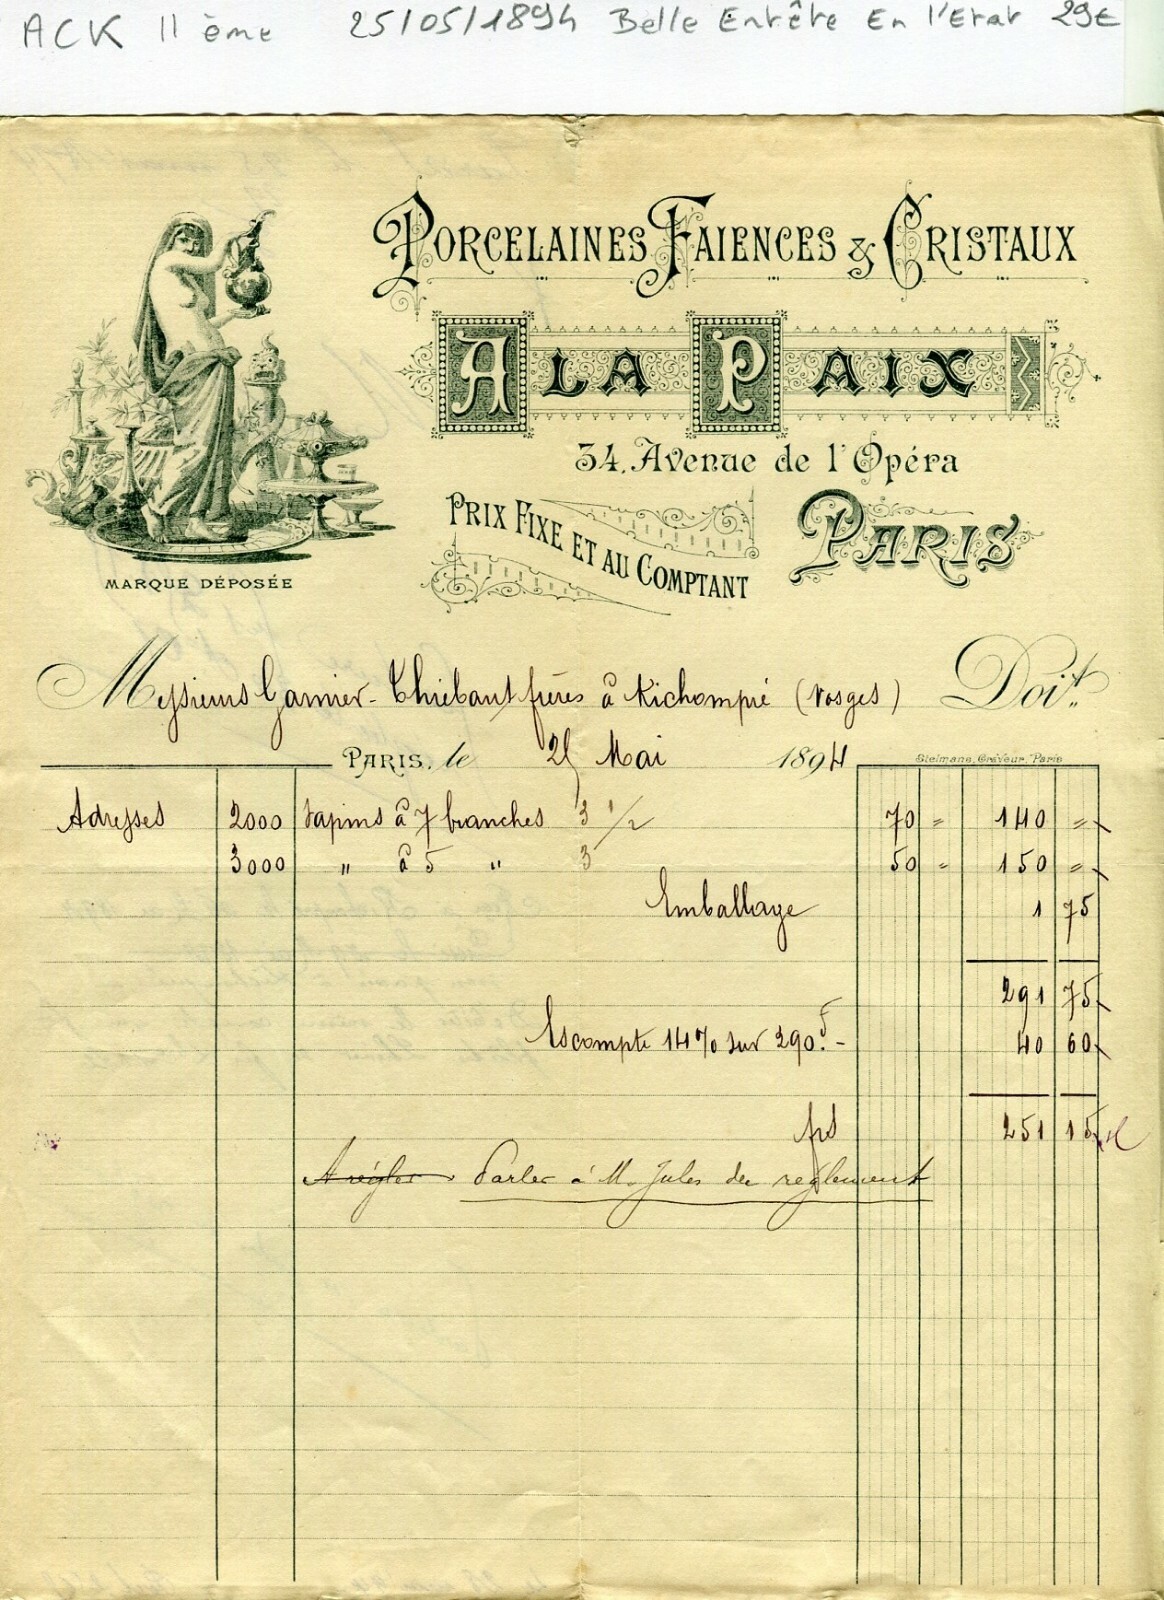 ACK 11ème 25/05/1894 Belle Entête En l'Etat 29€
PORCELAINES FAIENCES & CRISTAUX
A LA PAIX
34, Avenue de l'Opéra
PRIX FIXE ET AU COMPTANT
PARIS
MARQUE DÉPOSÉE
Messieurs Garnier-Thiébaut frères à Kichompré (Vosges) Doit
PARIS, le 25 Mai 1894
Steimans, Graveur, Paris
Adresses 2000 sapins à 7 branches 3 1/2 70 " 140 "
3000 " à 5 " 3 50 " 150 "
Emballage 1 75
291 75
Escompte 14% sur 290f. - 40 60
frs 251 15
A régler. Parler à M. Jules du reglement